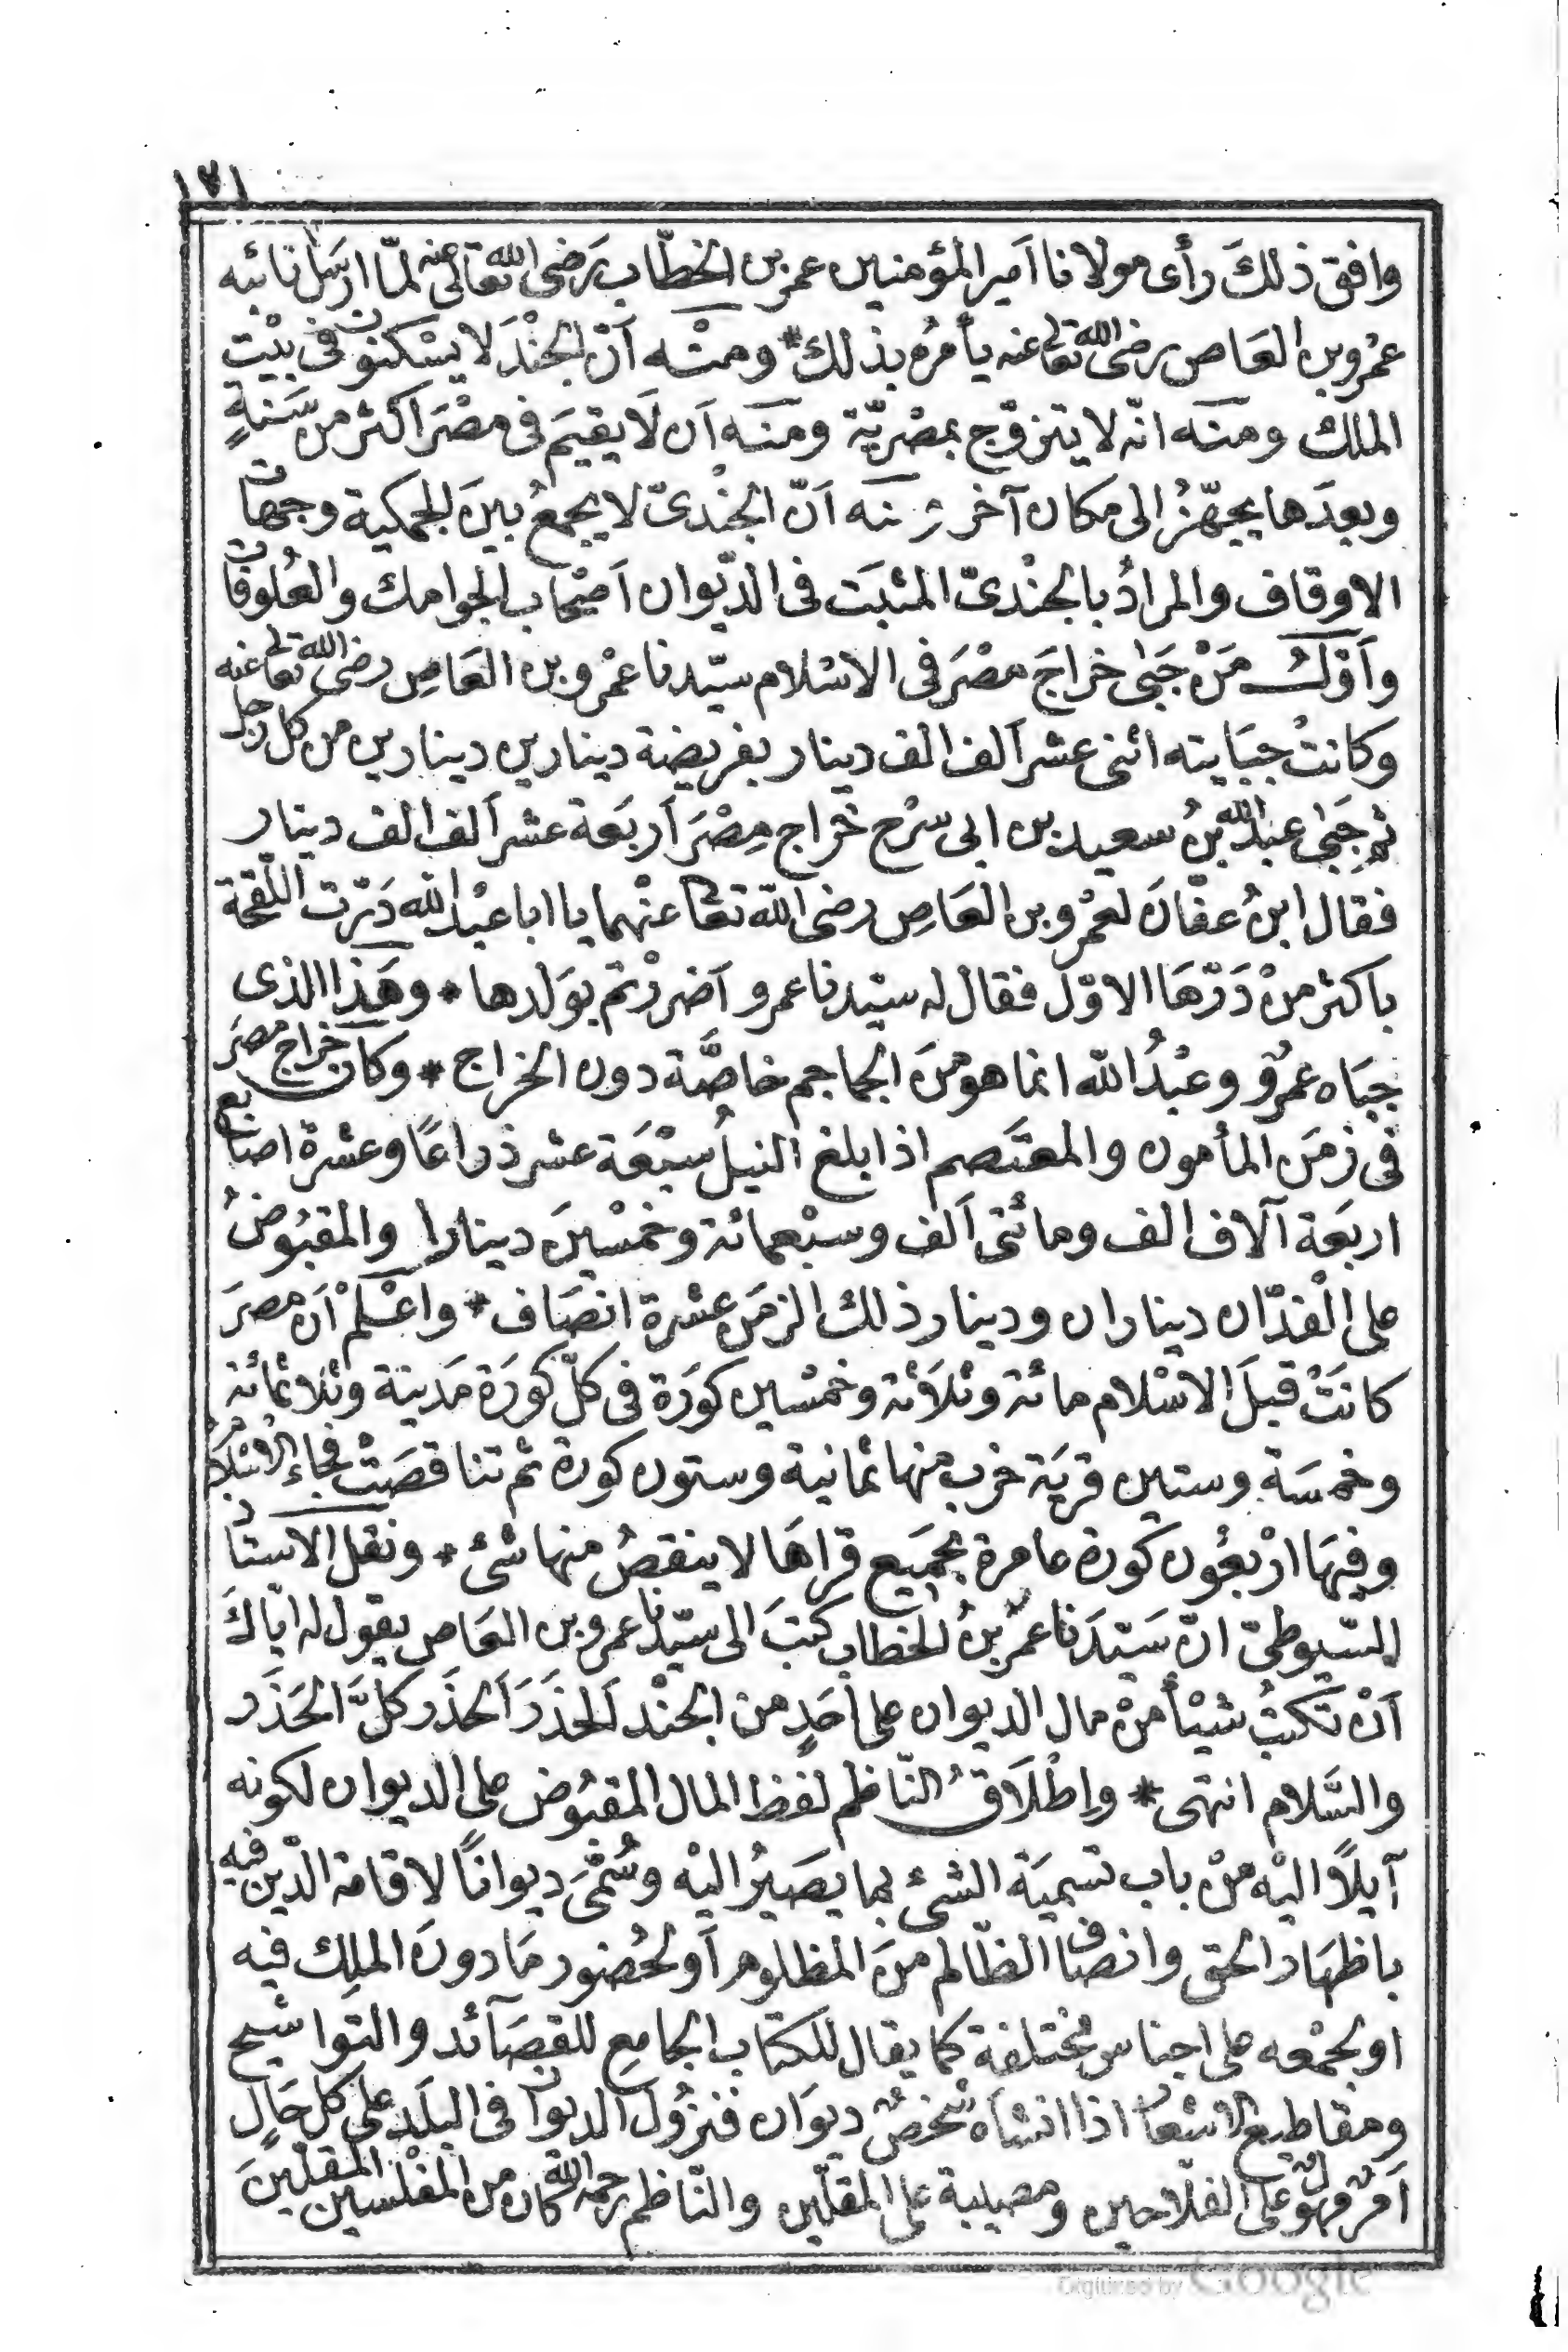 ١٧١
وافق ذلكَ رأى مولانا اَمير المؤمنين عمر بن الخطّاب رَضى الله تعالى عنه لمّا ارسَل نائبه
عمْرو بن العَاص رضى الله تعا عنه يأمرُه بذلك * ومنْه اَنّ الجنْدَ لا يسْكنون فى بيْت
الملك ومنَه انّه لا يتزوّج بمصْريّة ومنَه اَن لَا يقيمَ فى مصْرَ اكثر من سَنةٍ
وبعدَها يجهّزُ الى مكان آخر ومنَه اَنّ الجنْدىّ لا يجمعُ بينَ الجمكية وجهات
الاوقاف والمرادُ بالجنْدىّ المثبَت فى الدّيوان اَصْحاب الجوامك والعُلوفات
وَاَوّلُ مَنْ جَبىٰ خراجَ مصْرَ فى الاسْلام سيّدنا عمْرو بن العَاصِ رضى الله تعا عنه
وكانتْ جبَايته اثنى عشر اَلف الف دينار بفريضة دينارين دينارين من كل رجل
ثم جَبىٰ عبد الله بنُ سعيد بن ابى سرْح خَراج مِصْرَ اَربَعة عشر اَلف الف دينار
فقال ابنُ عفّانَ لعمْرو بن العَاصِ رضى الله تعا عنْهما يا ابا عبْد الله دَرّت اللّقحة
باكثر منْ دَرّهَا الاوّل فقال له سيّدنا عمرو اَضررْتم بوَلدها * وهَذا الذى
جبَاه عمْرو وعبْدُ الله انما هو منَ الجماجم خاصَّة دون الخراج * وكان خَراج مصرَ
فى زمَن المأمون والمعتَصم اذا بلغ النيلُ سبْعَة عشر ذراعًا وعشرة اصابع
اربَعة آلاف الف ومائتى اَلف وسبْعمائة وخمْسينَ دينارا والمقبُوضُ
على الْفدّان ديناران ودينار ذلك الزمَن عشرة انصَاف * واعْلمْ اَن مصرَ
كانَتْ قبلَ الاسْلام مائة وثلاَثة وخمْسين كورَة فى كلّ كورَة مَدينة وثلاثمائة
وخمسَة وستين قريَة خرب منها ثمانية وستون كورة ثم تناقصَتْ فجاءَ الاسْلامُ
وفيهَا ارْبعُون كورة عامرة بجميَع قراهَا لا ينقصُ منها شئ * ونقل الاستاذ
السّيوطىّ انّ سَيّدَنا عمَر بنُ الخطاب كتبَ الى سيّدنا عمرو بن العَاص يقول له ايّاكَ
اَنْ تكتبُ شيْئاً منْ مال الديوان على اَحَدٍ من الجنْد اَلحَذَرَ اَلحَذَر كلَّ الحَذَر
والسَّلام انتهى * واِطْلَاقُ النّاظم لفظ المال المقبُوض على الديوان لكونه
آيلاً اليْه منْ باب تسميَة الشئ بما يصَيرُ اليْه وسُمّىَ ديواناً لاقامة الدّين فيه
باظهَار الحق وانصاف الظّالم منَ المظلوم اَو لحُضور مَا دونَ الملِك فيه
او لجمْعه على اجناس مختلفة كما يقال للكتاب الجامِع للقصَآئد والتواشيح
ومقاطيع الاشعار اذا انشأه شخصٌ ديوَان فنزُول الديوان فى البلَد على كل حَالٍ
اَمر مهول على الفلّاحين ومصيبة على المقلّين والنّاظم رحمه الله كان من المفْلسين المقلّينَ
Digitized by Google